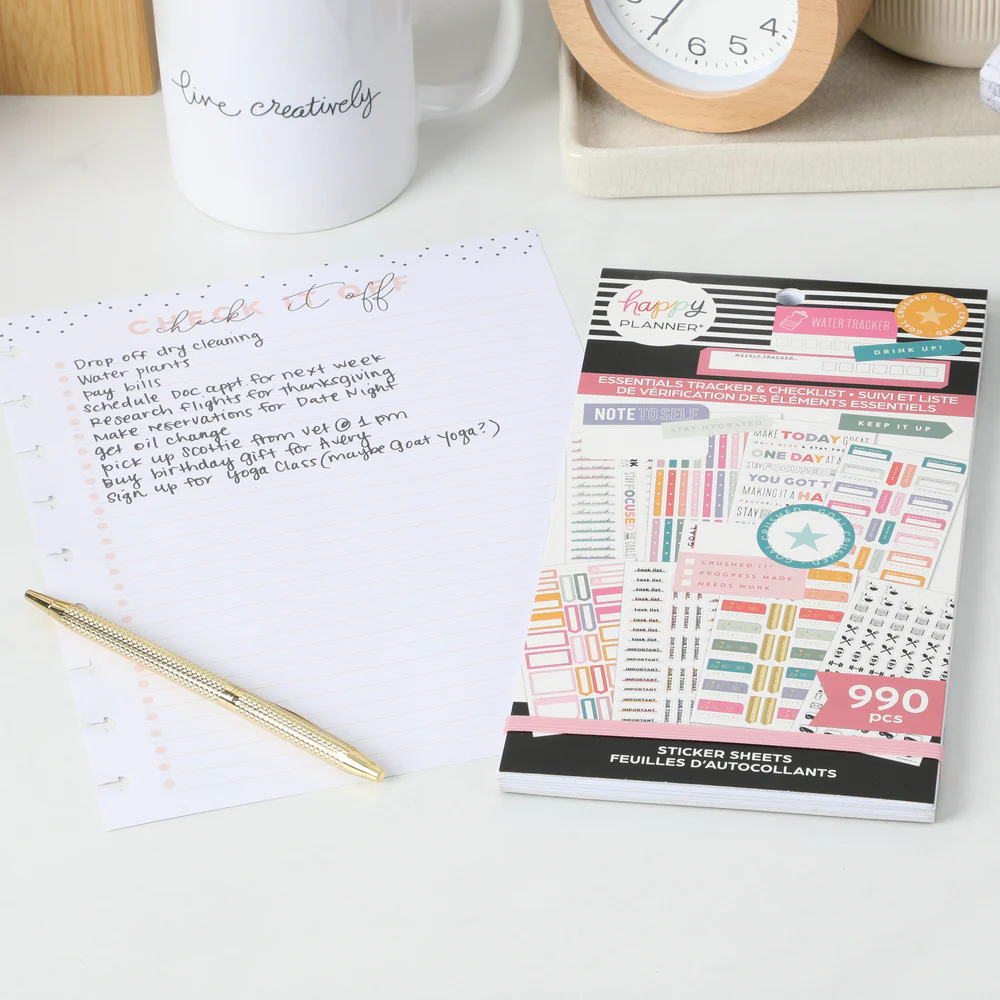 live creatively
6 5 4
CHECK IT OFF
check it off
Drop off dry cleaning
Water plants
pay bills
schedule Doc. appt. for next week
Research flights for thanksgiving
Make reservations for Date Night
get oil change
pick up Scottie from vet @ 1 pm
Buy birthday gift for Avery
Sign up for yoga class (maybe goat yoga?)
happy
PLANNER®
WATER TRACKER
GOAL CRUSHED
DRINK UP!
WEEKLY TRACKER:
ESSENTIALS TRACKER & CHECKLIST • SUIVI ET LISTE
DE VÉRIFICATION DES ÉLÉMENTS ESSENTIELS
NOTE TO SELF
STAY HYDRATED
KEEP IT UP
MAKE TODAY GREAT
ONE DAY AT A
STAY FOCUSED
YOU GOT T
MAKING IT A HA
STAY
STAY FOCUSED
GOALS
GOAL CRUSHED
CRUSHED IT!
PROGRESS MADE
NEEDS WORK
task list
task list
task list
task list
task list
task list
IMPORTANT
IMPORTANT
IMPORTANT
IMPORTANT
IMPORTANT
IMPORTANT
DUE TODAY
990
pcs
STICKER SHEETS
FEUILLES D'AUTOCOLLANTS